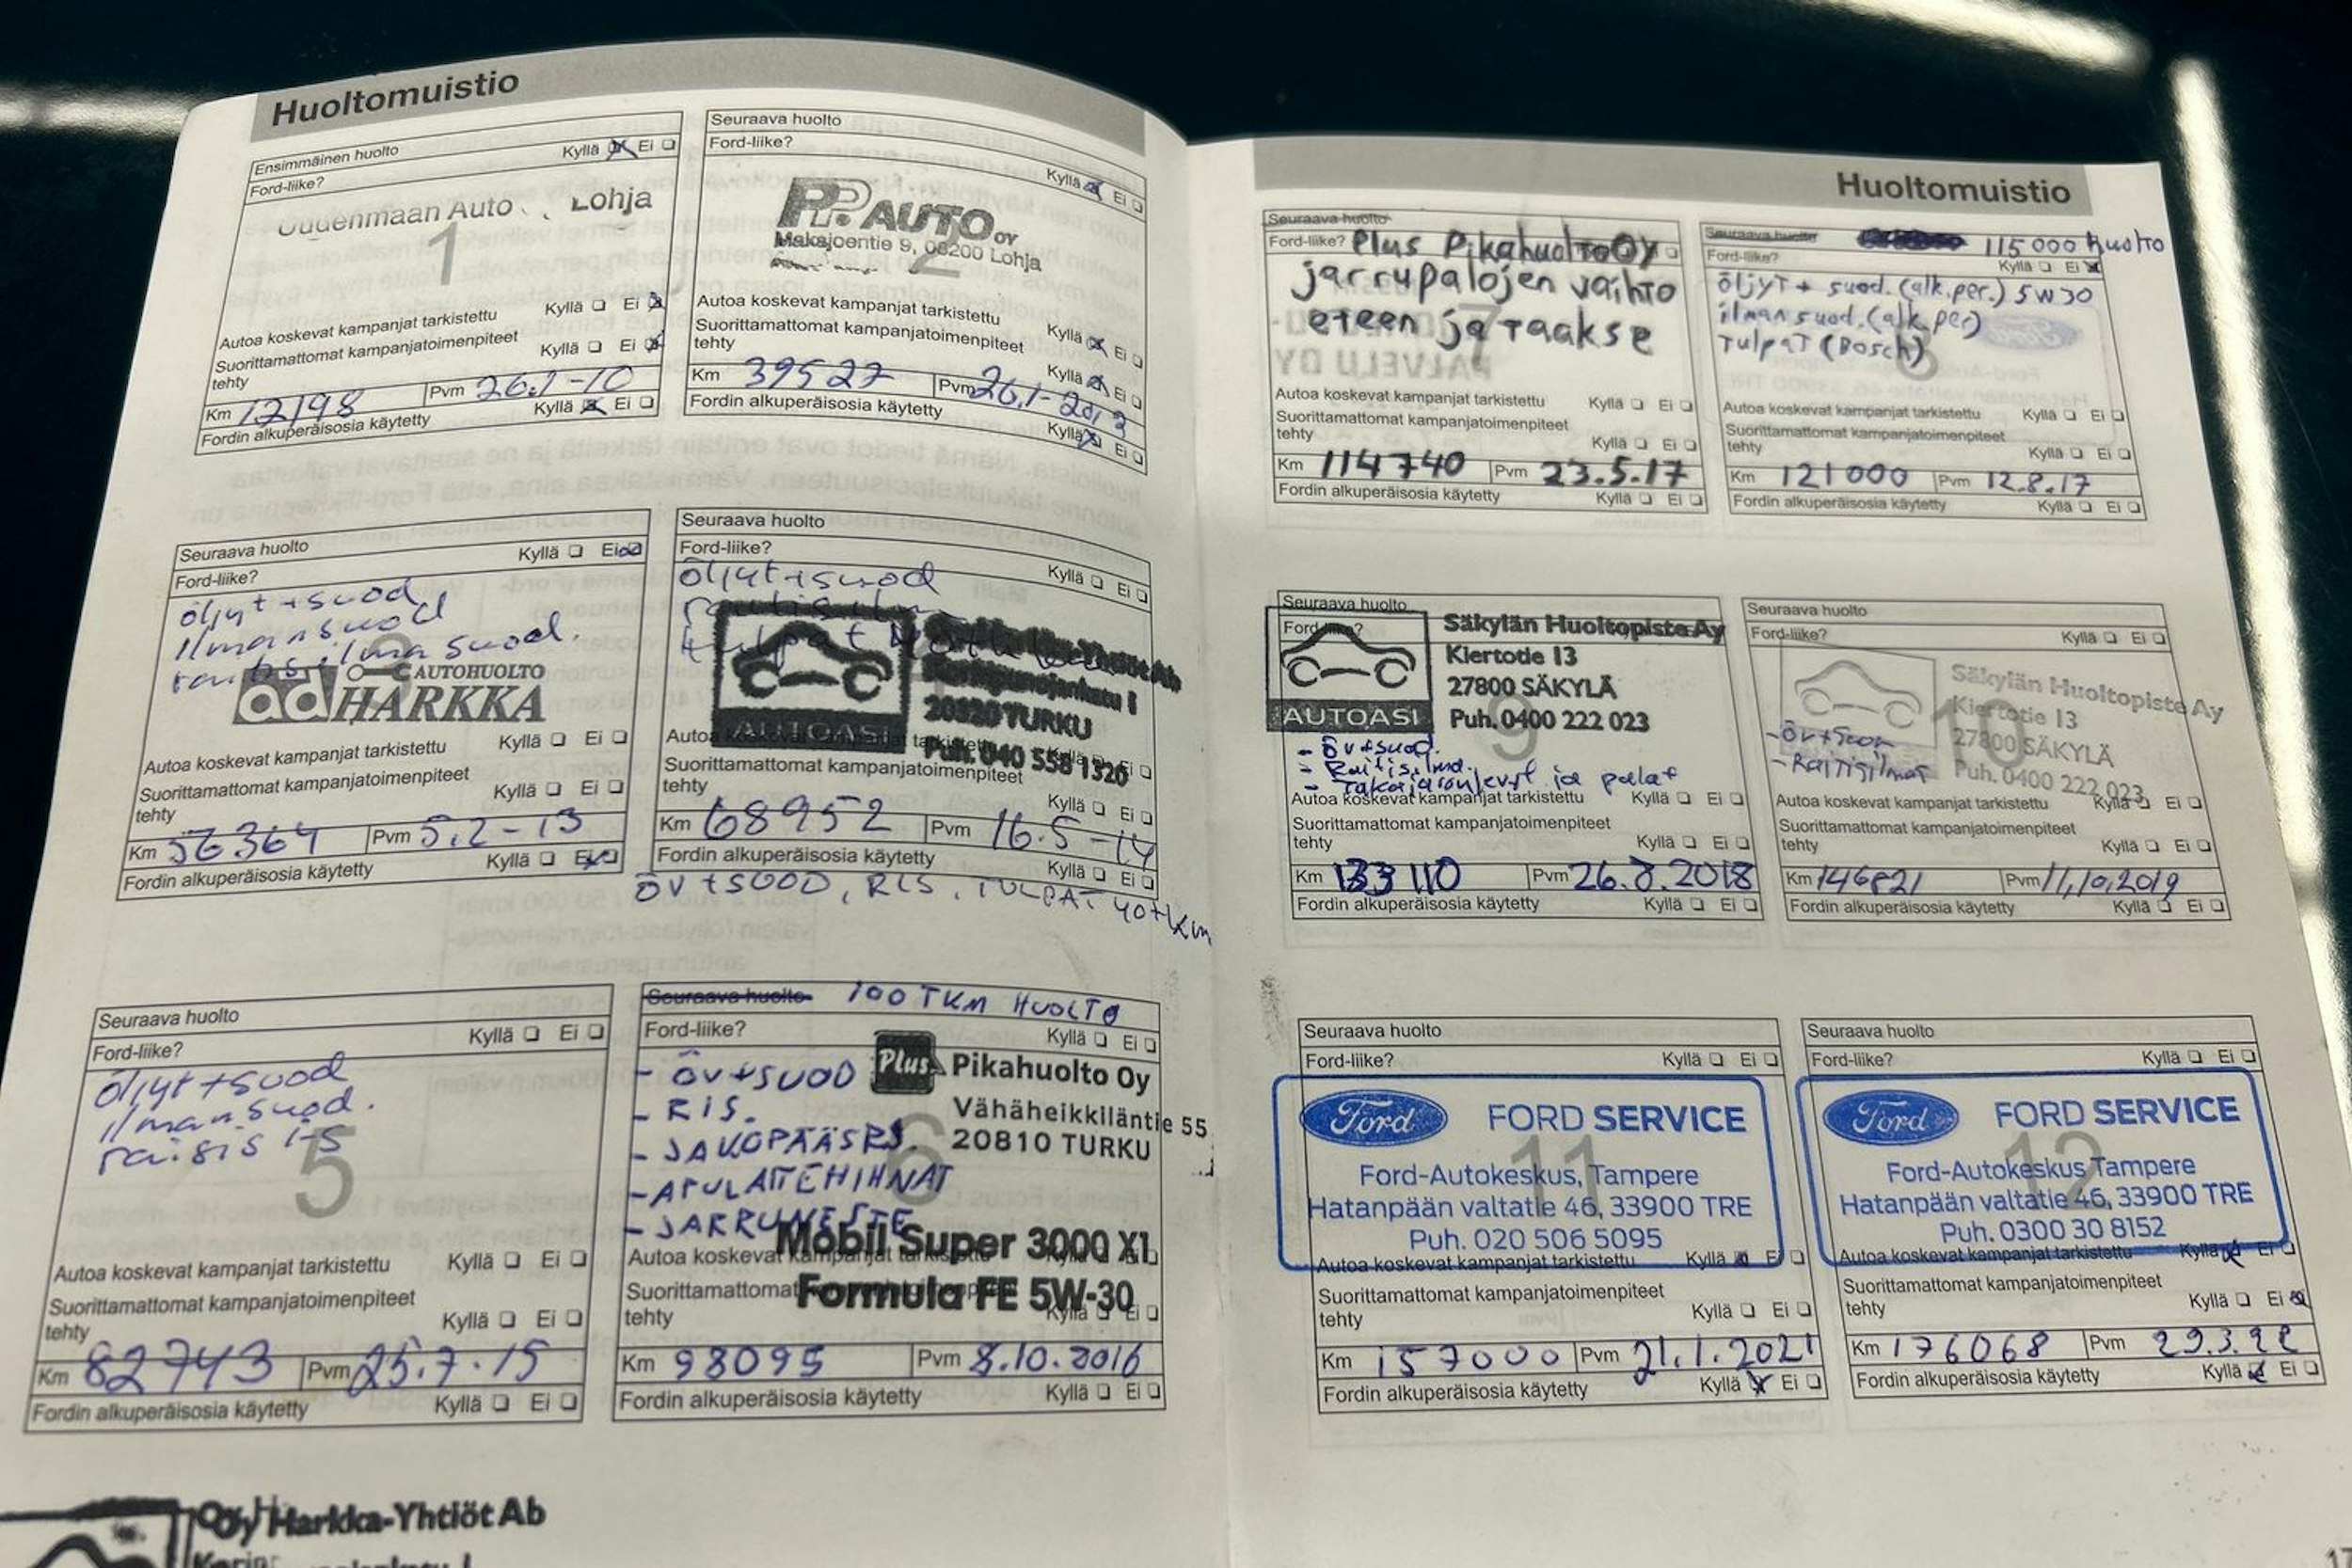 Huoltomuistio
Ensimmäinen huolto
Ford-liike? Kyllä Ei
Uudenmaan Auto Lohja
1
Autoa koskevat kampanjat tarkistettu Kyllä Ei
Suorittamattomat kampanjatoimenpiteet
tehty Kyllä Ei
Km 12198 Pvm 26.1-10
Fordin alkuperäisosia käytetty Kyllä Ei
Seuraava huolto
Ford-liike? Kyllä Ei
PP.AUTO OY
Maksjoentie 9, 08200 Lohja
2
Autoa koskevat kampanjat tarkistettu Kyllä Ei
Suorittamattomat kampanjatoimenpiteet
tehty Kyllä Ei
Km 39527 Pvm 26.1-2013
Fordin alkuperäisosia käytetty Kyllä Ei
Seuraava huolto
Ford-liike? Kyllä Ei
öljyt+suod
Ilmansuod
raitis ilma suod.
3
ad AUTOHUOLTO
HARKKA
Autoa koskevat kampanjat tarkistettu Kyllä Ei
Suorittamattomat kampanjatoimenpiteet
tehty Kyllä Ei
Km 56364 Pvm 5.2-13
Fordin alkuperäisosia käytetty Kyllä Ei
Seuraava huolto
Ford-liike? Kyllä Ei
öljyt+suod
tulpat
20320 TURKU
AUTOASI
Puh. 040 558 1320
Autoa koskevat kampanjat tarkistettu Kyllä Ei
Suorittamattomat kampanjatoimenpiteet
tehty Kyllä Ei
Km 68952 Pvm 16.5-14
Fordin alkuperäisosia käytetty Kyllä Ei
ÖV+SUOD, RIS, TULPAT
Seuraava huolto
Ford-liike? Kyllä Ei
öljyt+suod
ilman.suod.
5
Autoa koskevat kampanjat tarkistettu Kyllä Ei
Suorittamattomat kampanjatoimenpiteet
tehty Kyllä Ei
Km 82743 Pvm 25.7.15
Fordin alkuperäisosia käytetty Kyllä Ei
Seuraava huolto 100 TKM HUOLTO
Ford-liike? Kyllä Ei
Plus Pikahuolto Oy
Vähäheikkiläntie 55
20810 TURKU
- ÖV+SUOD
- RIS.
- JAKOPÄÄSRJ.
- APULAITEHIHNAT
- JARRUNESTE
6
Mobil Super 3000 X1
Formula FE 5W-30
Autoa koskevat kampanjat tarkistettu Kyllä Ei
Suorittamattomat kampanjatoimenpiteet
tehty Kyllä Ei
Km 98095 Pvm 8.10.2016
Fordin alkuperäisosia käytetty Kyllä Ei
Oy Harkka-Yhtiöt Ab
Huoltomuistio
Seuraava huolto
Ford-liike? Plus Pikahuolto Oy
jarrupalojen vaihto
eteen ja taakse
7
Autoa koskevat kampanjat tarkistettu Kyllä Ei
Suorittamattomat kampanjatoimenpiteet
tehty Kyllä Ei
Km 114740 Pvm 23.5.17
Fordin alkuperäisosia käytetty Kyllä Ei
Seuraava huolto 115000 huolto
Ford-liike? Kyllä Ei
öljyt + suod. (alk.per.) 5W30
ilmansuod.(alk.per)
Tulpat (Bosch)
8
Autoa koskevat kampanjat tarkistettu Kyllä Ei
Suorittamattomat kampanjatoimenpiteet
tehty Kyllä Ei
Km 121000 Pvm 12.8.17
Fordin alkuperäisosia käytetty Kyllä Ei
Seuraava huolto
Ford-liike?
AUTOASI
Säkylän Huoltopiste Ay
Kiertotie 13
27800 SÄKYLÄ
Puh. 0400 222 023
9
- öv+suod.
- Raitisilma.
- Takajarrulevyt ja palat
Autoa koskevat kampanjat tarkistettu Kyllä Ei
Suorittamattomat kampanjatoimenpiteet
tehty Kyllä Ei
Km 133110 Pvm 26.8.2018
Fordin alkuperäisosia käytetty Kyllä Ei
Seuraava huolto
Ford-liike? Kyllä Ei
Säkylän Huoltopiste Ay
Kiertotie 13
27800 SÄKYLÄ
Puh. 0400 222 023
10
- öv+suod
- Raitisilmas
Autoa koskevat kampanjat tarkistettu Kyllä Ei
Suorittamattomat kampanjatoimenpiteet
tehty Kyllä Ei
Km 146821 Pvm 11.10.2019
Fordin alkuperäisosia käytetty Kyllä Ei
Seuraava huolto
Ford-liike? Kyllä Ei
Ford FORD SERVICE
11
Ford-Autokeskus, Tampere
Hatanpään valtatie 46, 33900 TRE
Puh. 020 506 5095
Autoa koskevat kampanjat tarkistettu Kyllä Ei
Suorittamattomat kampanjatoimenpiteet
tehty Kyllä Ei
Km 157000 Pvm 21.1.2021
Fordin alkuperäisosia käytetty Kyllä Ei
Seuraava huolto
Ford-liike? Kyllä Ei
Ford FORD SERVICE
12
Ford-Autokeskus Tampere
Hatanpään valtatie 46, 33900 TRE
Puh. 0300 30 8152
Autoa koskevat kampanjat tarkistettu Kyllä Ei
Suorittamattomat kampanjatoimenpiteet
tehty Kyllä Ei
Km 176068 Pvm 29.3.22
Fordin alkuperäisosia käytetty Kyllä Ei